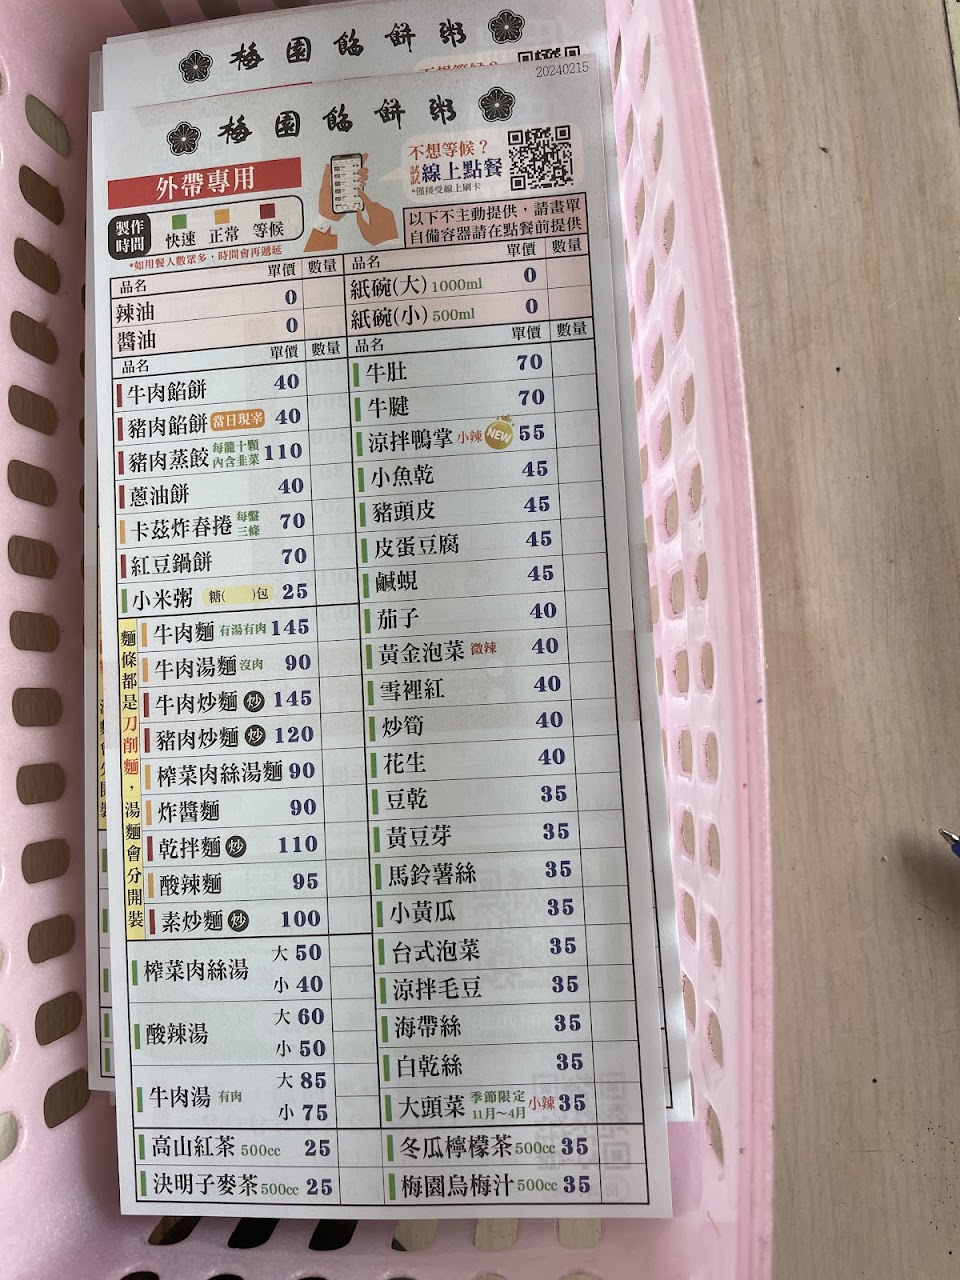 梅園餡餅粥
20240215
梅園餡餅粥
外帶專用
不想等候？
試試線上點餐
*僅接受線上刷卡
製作時間
快速 正常 等候
*如用餐人數眾多，時間會再遞延
以下不主動提供，請畫單
自備容器請在點餐前提供
品名 單價 數量
辣油 0
醬油 0
品名 單價 數量
紙碗(大) 1000ml 0
紙碗(小) 500ml 0
品名 單價 數量
牛肉餡餅 40
豬肉餡餅 當日現宰 40
豬肉蒸餃 每籠十顆 內含韭菜 110
蔥油餅 40
卡茲炸春捲 每盤三條 70
紅豆鍋餅 70
小米粥 糖( )包 25
麵條都是刀削麵，湯麵會分開裝
牛肉麵 有湯有肉 145
牛肉湯麵 沒肉 90
牛肉炒麵 炒 145
豬肉炒麵 炒 120
榨菜肉絲湯麵 90
炸醬麵 90
乾拌麵 炒 110
酸辣麵 95
素炒麵 炒 100
榨菜肉絲湯 大 50
小 40
酸辣湯 大 60
小 50
牛肉湯 有肉 大 85
小 75
高山紅茶 500cc 25
決明子麥茶 500cc 25
品名 單價 數量
牛肚 70
牛腱 70
涼拌鴨掌 小辣 NEW 55
小魚乾 45
豬頭皮 45
皮蛋豆腐 45
鹹蜆 45
茄子 40
黃金泡菜 微辣 40
雪裡紅 40
炒筍 40
花生 40
豆乾 35
黃豆芽 35
馬鈴薯絲 35
小黃瓜 35
台式泡菜 35
涼拌毛豆 35
海帶絲 35
白乾絲 35
大頭菜 季節限定 11月～4月 小辣 35
冬瓜檸檬茶 500cc 35
梅園烏梅汁 500cc 35